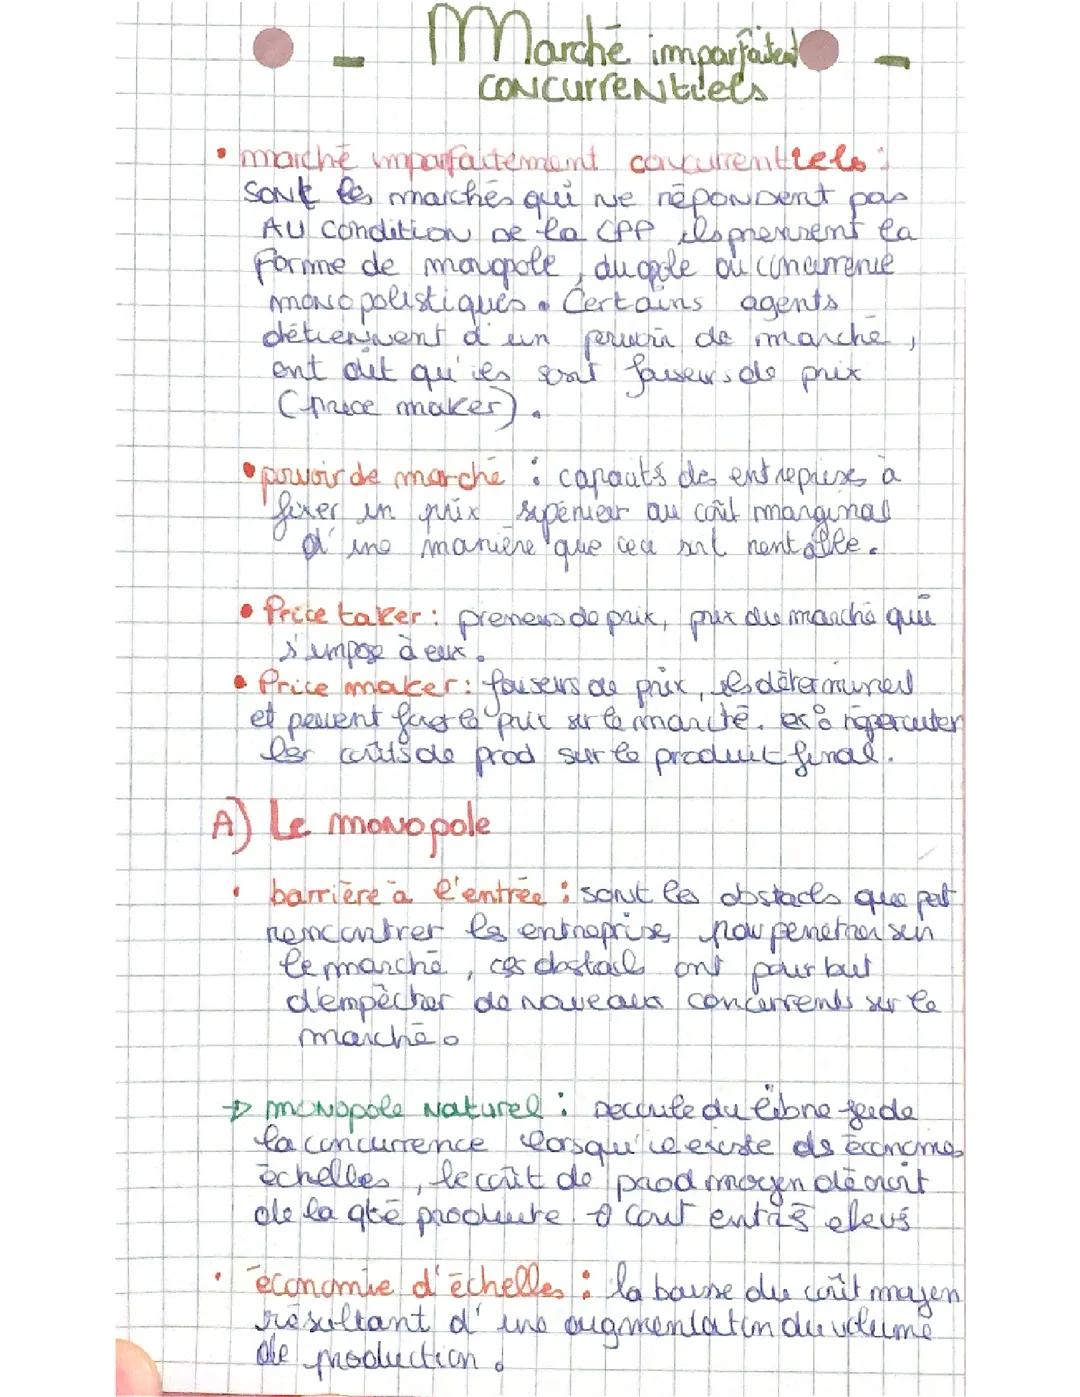 - Marché imparfaitement -
CONCURRENtiels
• marché imparfaitement concurrentiels :
sont les marchés qui ne répondent pas
AU condition de la CPP, ils prennent la
forme de monopole, duopole ou concurrence
monopolistiques. Certains agents
détiennent d'un pouvoir de marché,
ont dit qu'ils sont faiseurs de prix
(price maker).
• pouvoir de marché : capacités des entreprises à
fixer un prix supérieur au coût marginal
d'une manière que ceci soit rentable.
• Price taker : preneurs de prix, prix du marché qui
s'impose à eux.
• Price maker : faiseurs de prix, ils déterminent
et peuvent fixer le prix sur le marché. ex : répercuter
les coûts de prod sur le produit final.
A) Le monopole
• barrière à l'entrée : sont les obstacles que peut
rencontrer les entreprises pour penetrer sur
le marché, ces obstacles ont pour but
d'empêcher de nouveaux concurrents sur le
marché.
→ monopole Naturel : découle du libre jeu de
la concurrence lorsqu'il existe des économies
échelles, le coût de prod moyen décroit
de la qté produite → cout entrés élevés
• économie d'échelles : la baisse du coût moyen
résultant d'une augmentation du volume
de production.